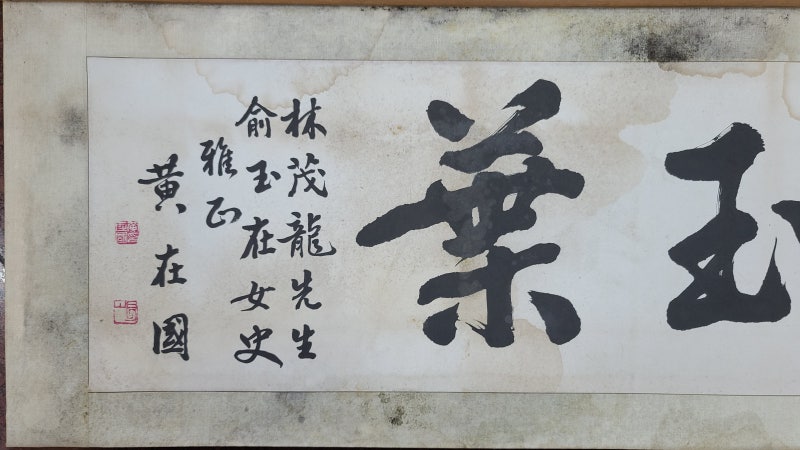 玉葉
林茂龍先生
俞玉在女史
雅正
黄在國